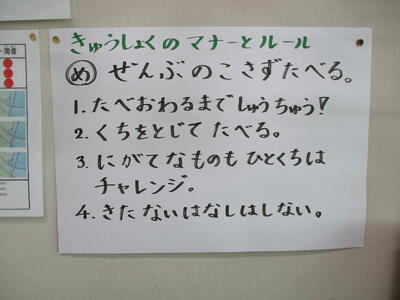 きゅうしょくのマナーとルール
め ぜんぶのこさずたべる。
1. たべおわるまでしゅうちゅう!
2. くちをとじてたべる。
3. にがてなものもひとくちは
チャレンジ。
4. きたないはなしはしない。